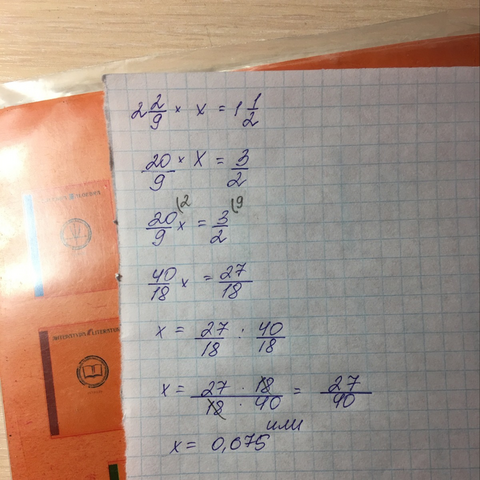 2 2/9 × x = 1 1/2
20/9 × x = 3/2
20/9 (2 x = 3/2 (9
40/18 x = 27/18
x = 27/18 : 40/18
x = 27 · 18 / 18 · 40 = 27/40
или
x = 0,675